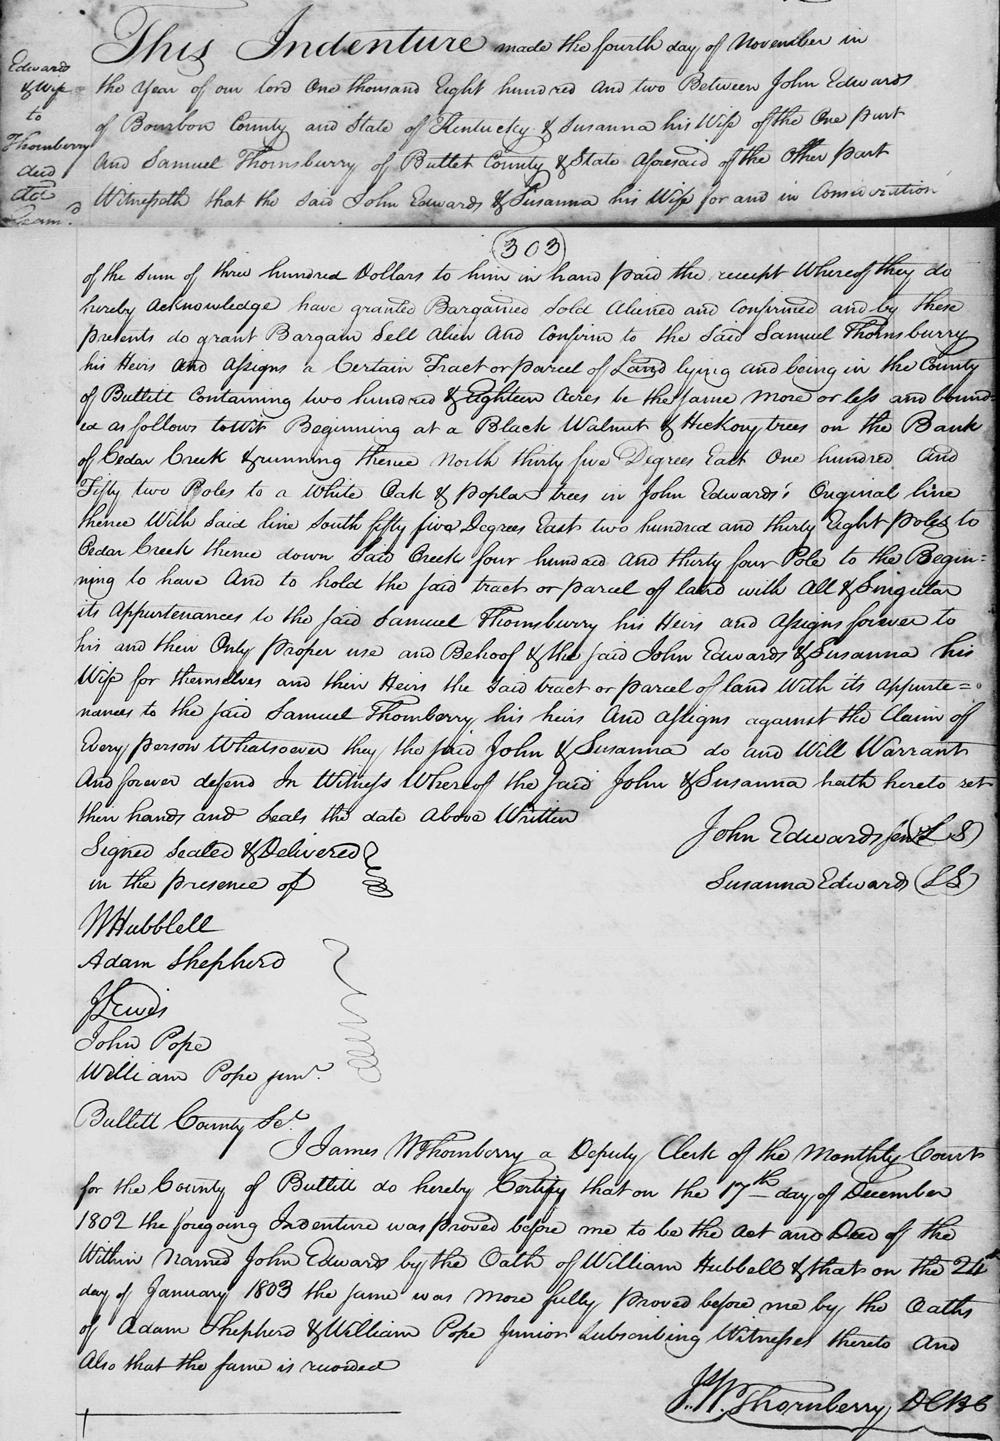 This Indenture made the fourth day of November in
Edwards
& Wife
to
Thornberry
deed
the Year of our lord One thousand Eight hundred and two Between John Edwards
of Bourbon County and State of Kentucky & Susanna his Wife of the One part
And Samuel Thornsburry of Bullet County & State aforesaid of the Other part
Witnesseth that the said John Edwards & Susanna his Wife for and in Consideration
303
of the Sum of three hundred Dollars to him in hand paid the receipt Whereof they do
hereby acknowledge have granted Bargained Sold Aliened and Confirmed and by these
presents do grant Bargain Sell Alien And Confirm to the Said Samuel Thornsburry
his Heirs And Assigns a Certain Tract or parcel of Land lying and being in the County
of Bullitt Containing two hundred & Eighteen Acres be the same more or less and bound-
ed as follows towit Beginning at a Black Walnut & Hickory trees on the Bank
of Cedar Creek & running thence North thirty five Degrees East One hundred And
Fifty two Poles to a White Oak & poplar trees in John Edwards's Original line
thence With Said line South fifty five Degrees East two hundred and thirty Eight poles to
Cedar Creek thence down Said Creek four hundred And thirty four Pole to the Begin=
ning to have And to hold the said tract or parcel of land with All & Singular
its Appurtenances to the said Samuel Thornsburry his Heirs and Assigns forever to
his and their Only proper use and Behoof & the said John Edwards & Susanna his
Wife for themselves and their Heirs the Said tract or parcel of land With its appurte=
nances to the said Samuel Thornberry his heirs And assigns against the Claim of
Every person Whatsoever they the said John & Susanna do and Will Warrant
And forever defend In Witness Whereof the said John & Susanna hath hereto set
their hands and Seals the date above Written
John Edwards senr (LS)
Signed Sealed & Delivered
in the presence of
Susanna Edwards (LS)
W Hubblell
Adam Shepherd
J Lewis
John Pope
William Pope junr.
Bullitt County Sct.
I James W Thornberry a Deputy Clerk of the Monthly Court
for the County of Bullitt do hereby Certify that on the 17th day of December
1802 the foregoing Indenture was proved before me to be the act and Deed of the
Within Named John Edwards by the Oath of William Hubbell & that on the 24th
day of January 1803 the same was more fully proved before me by the Oaths
of Adam Shepherd & William Pope Junior Subscribing Witnesses thereto And
Also that the same is recorded
Js. W. Thornberry DCBC